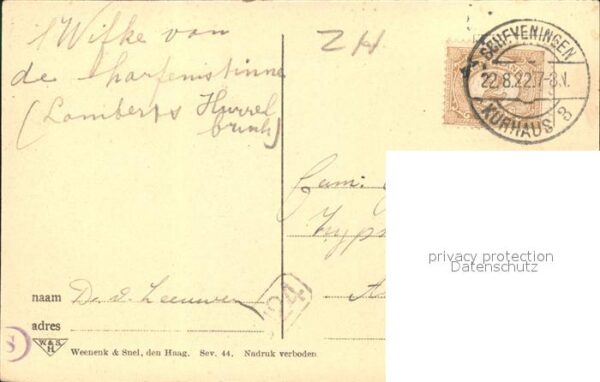 Wilke van
de Charfenistinne
(Lamberts Hurrel
brink)
ZH
SCHEVENINGEN
22.8.22.7-8.N.
KURHAUS 3
Fam:
privacy protection
Datenschutz
naam D. v. Leeuwen
adres
24
S
W&S
H
Weenenk & Snel, den Haag. Sev. 44. Nadruk verboden